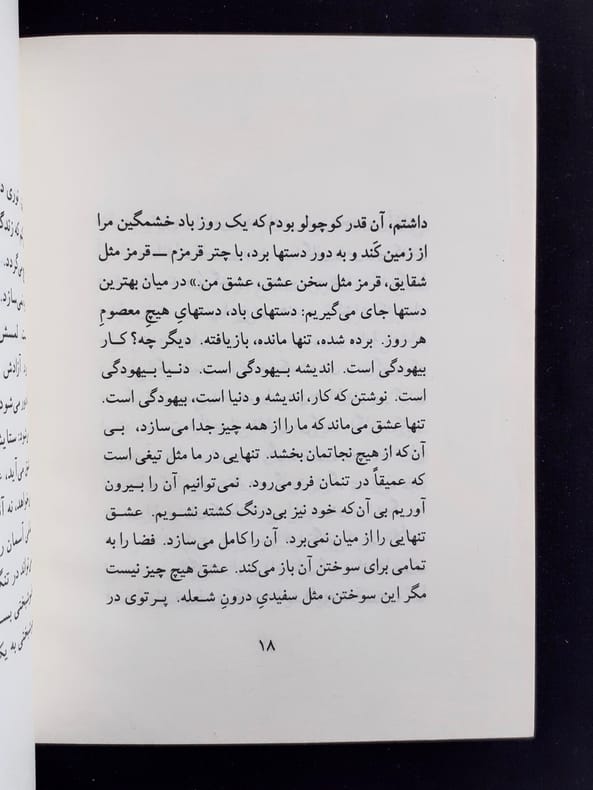 داشتم، آن قدر کوچولو بودم که یک روز باد خشمگین مرا
از زمین کَند و به دور دستها برد، با چتر قرمزم ــ قرمز مثل
شقایق، قرمز مثل سخن عشق، عشق من.» در میان بهترین
دستها جای می‌گیریم: دستهای باد، دستهایِ هیچِ معصومِ
هر روز. برده شده، تنها مانده، بازیافته. دیگر چه؟ کار
بیهودگی است. اندیشه بیهودگی است. دنیا بیهودگی
است. نوشتن که کار، اندیشه و دنیا است، بیهودگی است.
تنها عشق می‌ماند که ما را از همه چیز جدا می‌سازد، بی
آن‌که از هیچ نجاتمان بخشد. تنهایی در ما مثل تیغی است
که عمیقاً در تنمان فرو می‌رود. نمی‌توانیم آن را بیرون
آوریم بی آن‌که خود نیز بی‌درنگ کشته نشویم. عشق
تنهایی را از میان نمی‌برد. آن را کامل می‌سازد. فضا را به
تمامی برای سوختن آن باز می‌کند. عشق هیچ چیز نیست
مگر این سوختن، مثل سفیدیِ درونِ شعله. پرتوی در
۱۸